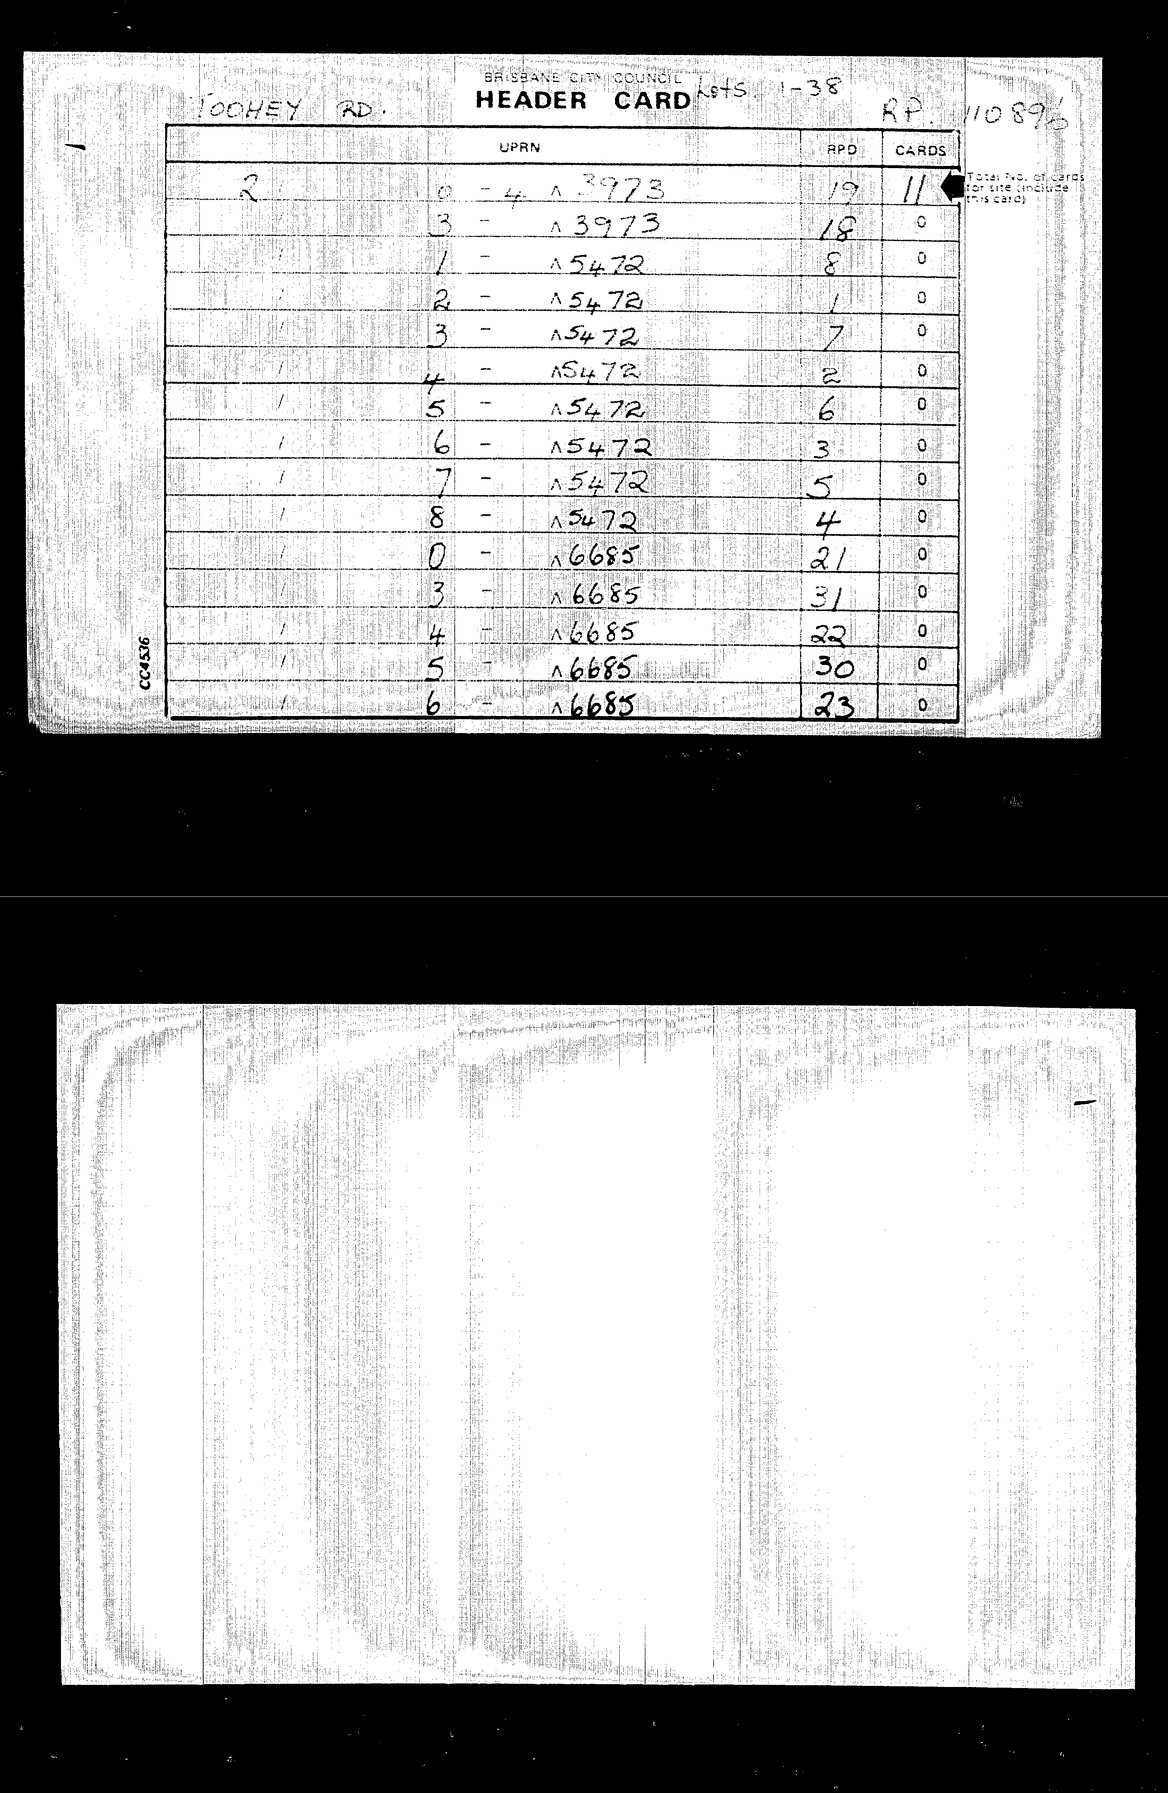 BRISBANE CITY COUNCIL
HEADER CARD Lots 1-38
TOOHEY RD. RP. 110896
UPRN RPD CARDS
2 0 - 4 ^ 3973 19 11
Total No. of cards
for site (include
this card)
3 - ^ 3973 18 0
/ 1 - ^ 5472 8 0
/ 2 - ^ 5472 1 0
/ 3 - ^ 5472 7 0
/ 4 - ^ 5472 2 0
/ 5 - ^ 5472 6 0
/ 6 - ^ 5472 3 0
/ 7 - ^ 5472 5 0
/ 8 - ^ 5472 4 0
/ 0 - ^ 6685 21 0
/ 3 - ^ 6685 31 0
/ 4 - ^ 6685 22 0
/ 5 - ^ 6685 30 0
/ 6 - ^ 6685 23 0
CC4536